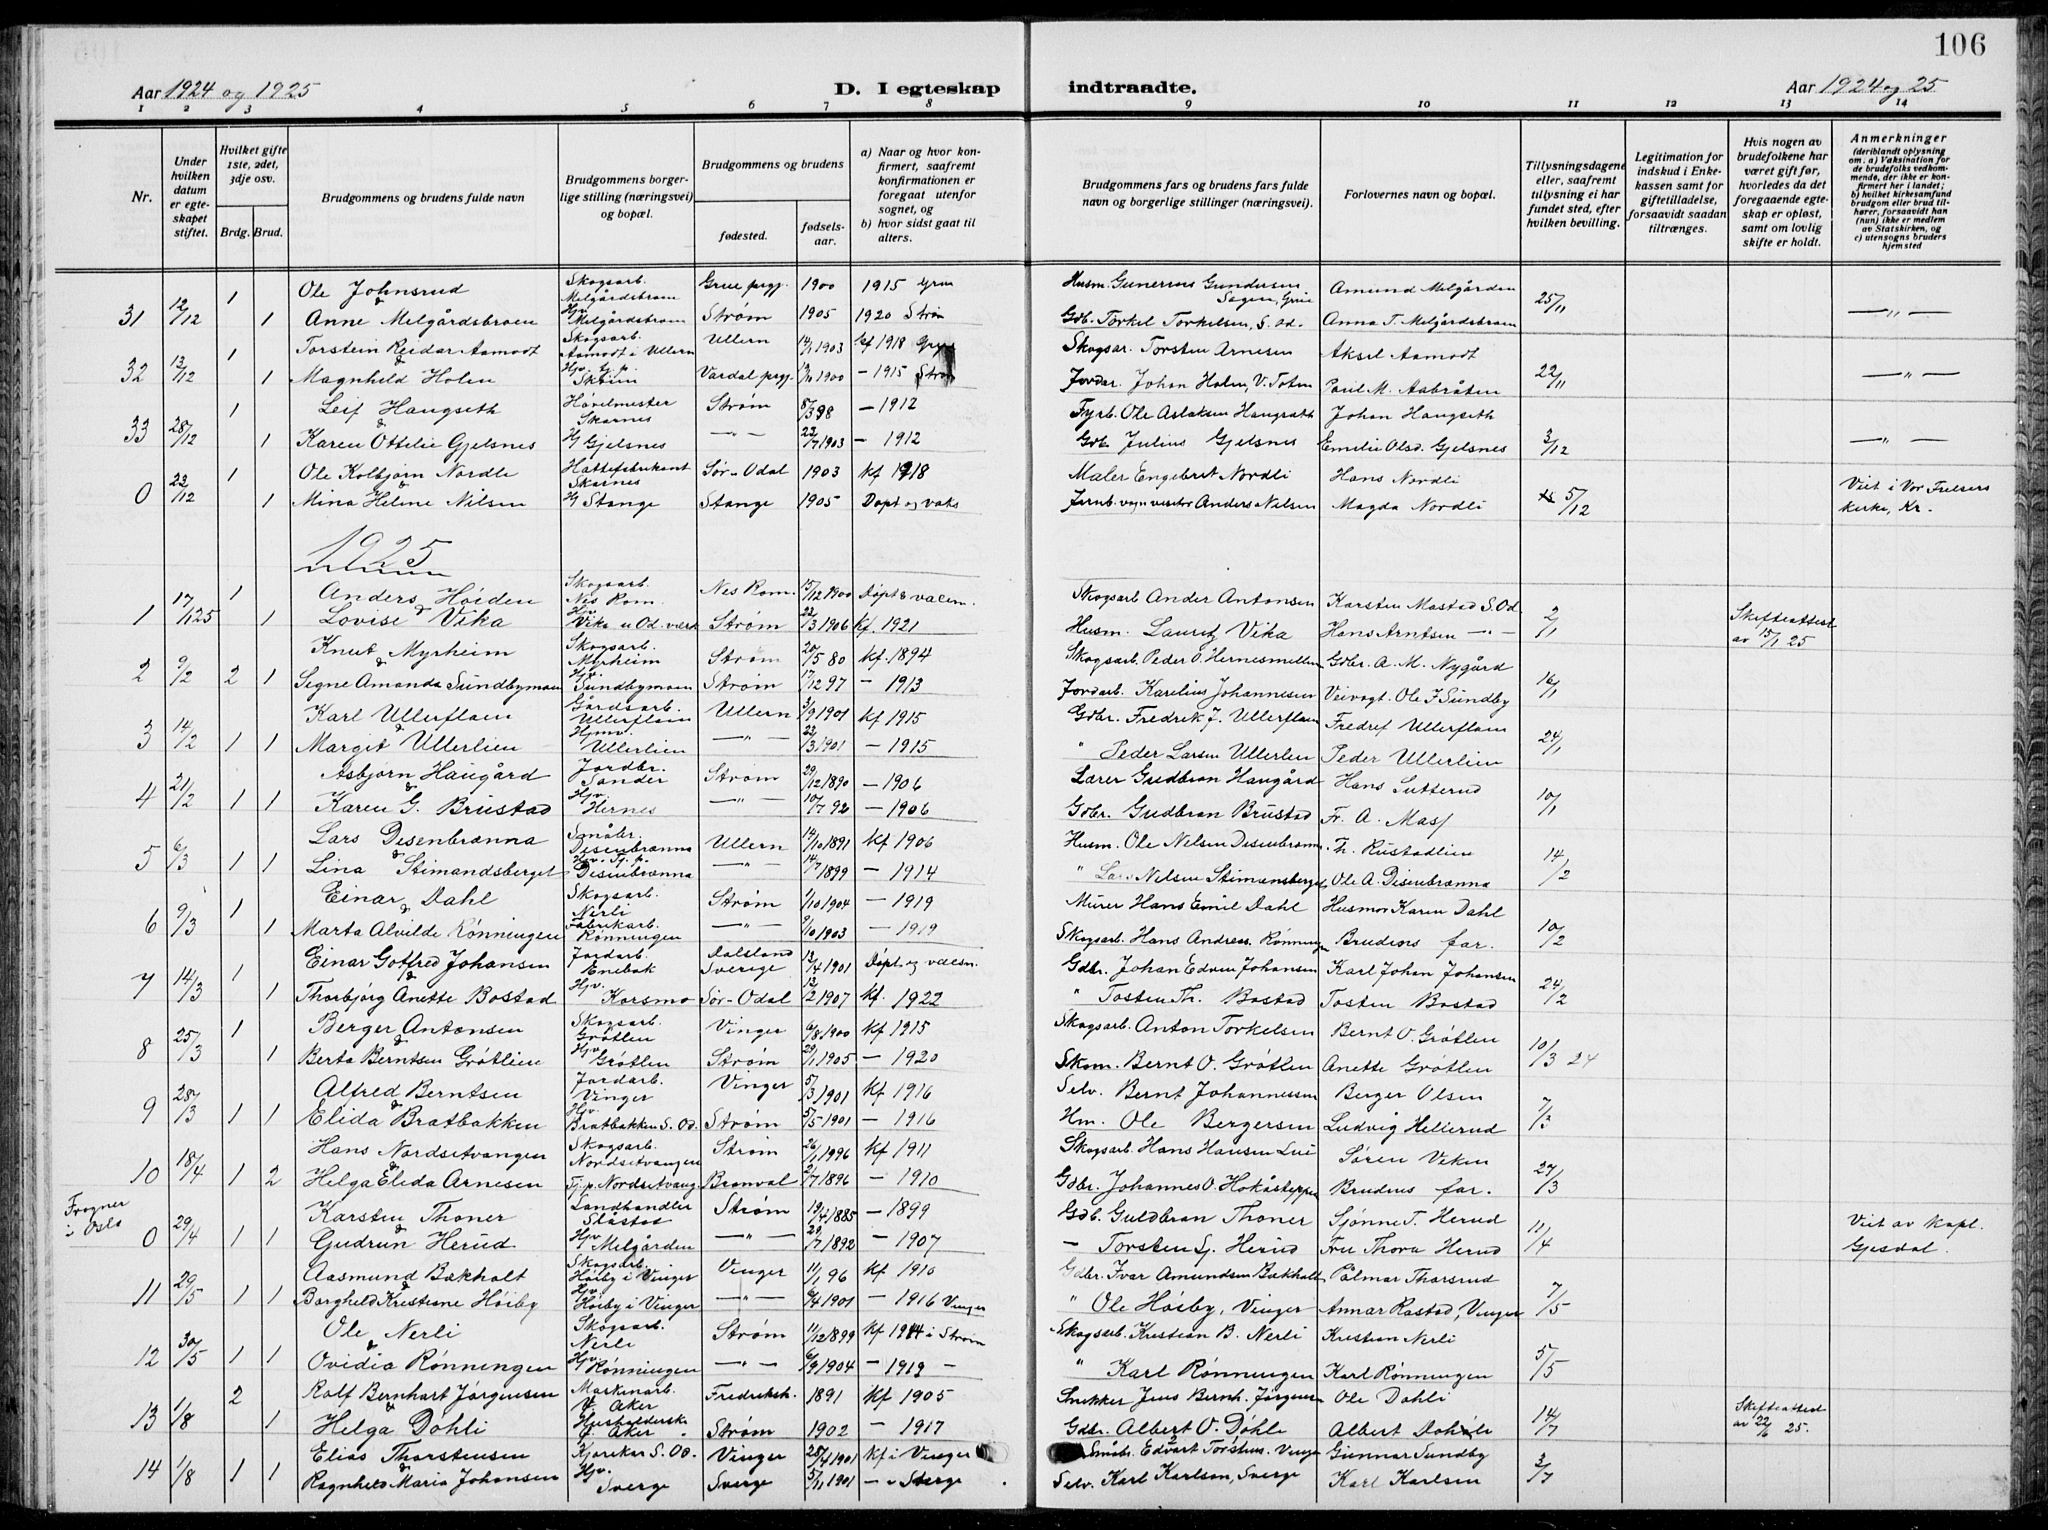 106
Aar 1924 og 1925
D. I egteskap
indtraadte.
Aar 1924 og 25
1 2 3 4 5 6 7 8 9 10 11 12 13 14
Nr.
Under hvilken datum er egteskapet stiftet.
Hvilket gifte 1ste, 2det, 3dje osv.
Brdg. Brud.
Brudgommens og brudens fulde navn
Brudgommens borgerlige stilling (næringsvei) og bopæl.
Brudgommens og brudens
fødested.
fødselsaar.
a) Naar og hvor konfirmert, saafremt konfirmationen er foregaat utenfor sognet, og
b) hvor sidst gaat til alters.
Brudgommens fars og brudens fars fulde navn og borgerlige stillinger (næringsvei).
Forlovernes navn og bopæl.
Tillysningsdagene eller, saafremt tillysning ei har fundet sted, efter hvilken bevilling.
Legitimation for indskud i Enkekassen samt for giftetilladelse, forsaavidt saadan tiltrænges.
Hvis nogen av brudefolkene har været gift før, hvorledes da det foregaaende egteskap er opløst, samt om lovlig skifte er holdt.
Anmerkninger
(deriblandt oplysning om. a) Vaksination for de brudefolks vedkommende, der ikke er konfirmert her i landet; b) hvilket kirkesamfund brudgom eller brud tilhører, forsaavidt han (hun) ikke er medlem av Statskirken, og c) utensogns bruders hjemsted
Ole Johnsrud Skogsarb. Melgårdsbraen Grue prgj. 1900 1915 Grue Husm. Gunerius Gundersen Sagen, Grue Amund Melgården
31 12/12 1 1 Anne Melgårdsbraen Hv Melgårdsbraen Strøm 1905 1920 Strøm Gdb. Torkel Torkelsen, S. Od. Anna T. Melgårdsbraen 25/11 — " —
Torstein Reidar Aamodt Skogsarb. Aamodt i Ullern Ullern 1903 kf 1918 Skogsar. Torsten Arnesen Aksel Aamodt
32 13/12 1 1 Magnhild Holen Hjv. tj. p. Skrim Vardal prgj. 1900 — 1915 Strøm Jordar. Johan Holen, V. Toten Paul M. Aabråten 22/11 — " —
Leif Haugseth Høvelmester Skarnes Strøm 8/3 98 — 1912 Fyrb. Ole Aslaksen Haugseth Johan Haugseth
33 28/12 1 1 Karen Ottelie Gjelsnes Hj Gjelsnes — " — 22/7 1903 — 1912 Gdb. Julius Gjelsnes Emelie Olsd. Gjelsnes 3/12 — " —
Ole Kolbjørn Nordli Hattefabrikant Skarnes Sør-Odal 1903 kf 1918 Maler Engebret Nordli Hans Nordli
0 22/12 1 1 Mina Helene Nilsen Hj Stange Stange 1905 Døpt og vaks Jernb. vogn visitør Anders Nilsen Magda Nordli 5/12 Viet i Vor Frelsers kirke, Kr.
1925
Anders Høiden Skogsarb. Nes Rom. Nes Rom. 15/12 1900 Døpt & vacsn. Skogsarb Ander Antonsen Karsten Mastad S. Od
1 17/1 25 1 1 Lovise Vika Hjv Vika u Od. verk Strøm 22/3 1906 kf. 1921 Husm. Lauritz Vika Hans Arntsen — " — 2/1 Skifteattest av 15/1 25
Knut Myrheim Skogsarb. Myrheim Strøm 20/5 80 kf. 1894 Skogsarb. Peder O. Hernesmellem Gdbr. A. M. Nygård
2 9/2 2 1 Signe Amanda Sundbymoen Hjv. Sundbymoen Strøm 17/12 97 — 1913 Jordarb. Karelius Johannesen Veivogt. Ole F Sundby 16/1
Karl Ullerflaen Gårdsarb. Ullerflaen Ullern 3/9 1901 kf 1915 Gdbr. Fredrik J. Ullerflaen Fredref Ullerflaen
3 14/2 1 1 Margit Ullerlien Hjmv. Ullerlien — " — 22/3 1901 — 1915 " Peder Larsen Ullerlien Peder Ullerlien 24/1
Asbjørn Haugård Jordbr. Sander Strøm 29/12 1890 — 1906 Lærer Gudbran Haugård Hans Sutterud
4 21/2 1 1 Karen G. Brustad Hjv. Hernes — " — 10/7 92 — 1906 Gdbr. Gudbran Brustad Fr. A. Masf 10/1
Lars Disenbrænna Småbr. Disenbrænna Ullern 14/10 1891 kf 1906 Husm. Ole Nilsen Disenbrænna Th. Rustadlien
5 6/3 1 1 Lina Stimandsberget Hjv. Tj. p. Disenbrænna — " — 14/7 1899 — 1914 " Lars Nilsen Stimansberget Ole A. Disenbrænna 14/2
Einar Dahl Skogsarb. Nerli Strøm 1/10 1904 — 1919 Murer Hans Emil Dahl Husmor Karen Dahl
6 9/3 1 1 Marta Alvilde Rønningen Fabrikarb. Rønningen — " — 9/10 1903 — 1919 Skogsarb. Hans Andreas. Rønningen Brudens far. 10/2
Einar Gotfred Johansen Jordarb. Enebak Dalsland Sverige 13/4 1901 Døpt. og vacsn. Gdbr. Johan Edvin Johansen Karl Johan Johansen
7 14/3 1 1 Thorbjørg Anette Bostad Hjv. Korsmo Sør-Odal 12/2 1907 kf. 1922 " Tosten Th. Bostad Tosten Bostad 24/2
Berger Antonsen Skogsarb. Grøtlen Vinger 6/8 1900 kf 1915 Skogsarb. Anton Torkelsen Bernt O. Grøtlen
8 25/3 1 1 Berta Berntsen Grøtlien Hjv Grøtlen Strøm 29/1 1905 — 1920 Skom. Bernt O. Grøtlen Anette Grøtlen 10/3 24
Alfred Berntsen Jordarb. Vinger Vinger 5/3 1901 kf 1916 Selv. Bernt Johannessen Berger Olsen
9 28/3 1 1 Elida Bratbakken Hjv. Bratbakken S. Od. Strøm 5/5 1901 — 1916 Hm. Ole Bergersen Ludvig Hellerud 7/3
Hans Nordsetvangen Skogsarb. Nordsetvangen Strøm 26/1 1996 kf 1911 Skogsarb. Hans Hansen Lie Søren Viken
10 18/4 1 2 Helga Elida Arnesen Tj. p. Nordsetvang. Branval 21/7 1896 — 1910 Gdbr. Johannes O. Hokåsteppen Brudens far. 27/3
Frogner i Oslo Karsten Thoner Landhandler Slåstad Strøm 13/4 1885 — 1899 Gdb. Guldbran Thoner Sjønne T. Herud
0 29/4 1 1 Gudrun Herud Hjv Melgården — " — 29/7 1892 — 1907 — Torsten Sj. Herud Fru Thora Herud 11/4 Viet av kapl. Gjesdal.
Aasmund Bækholt Skogsarb. Høiby i Vinger Vinger 11/1 96 kf 1910 Gdbr. Ivar Amundsen Bækholt Palmar Thorsrud
11 29/5 1 1 Borghild Kristine Høiby Hjv. Høiby i Vinger — " — 6/4 1901 — 1916 Vinger " Ole Høiby, Vinger Annar Rastad, Vinger 7/5
Ole Nerli Skogsarb. Nerli Strøm 11/12 1899 kf 1914 i Strøm Skogsarb. Kristian B. Nerli Kristian Nerli
12 30/5 1 1 Ovidia Rønningen Hjv Rønningen — " — 6/9 1904 — 1919 — " Karl Rønningen Karl Rønningen 5/5
Rolf Bernhart Jørgensen Maskinarb. V. Aker Fredriksh. 1891 kf 1905 Snekker Jens Bernh. Jørgens Ole Dahli
13 1/8 2 1 Helga Døhli Husholderske V. Aker Strøm 1902 — 1917 Gdbr. Albert O. Døhle Albert Dohli 14/7 Skifteattest av 22/6 25.
Elias Thorstensen Kjørekar S. Od. Vinger 28/4 1901 kf i Vinger Småb. Edvart Torstens. Vinger Gunnar Sundby
14 1/8 1 1 Ragnhild Maria Johansen Hjv. Sverge Sverge 5/11 1901 — " Sverge Selv. Karl Karlsen, Sverge Karl Karlsen 3/7